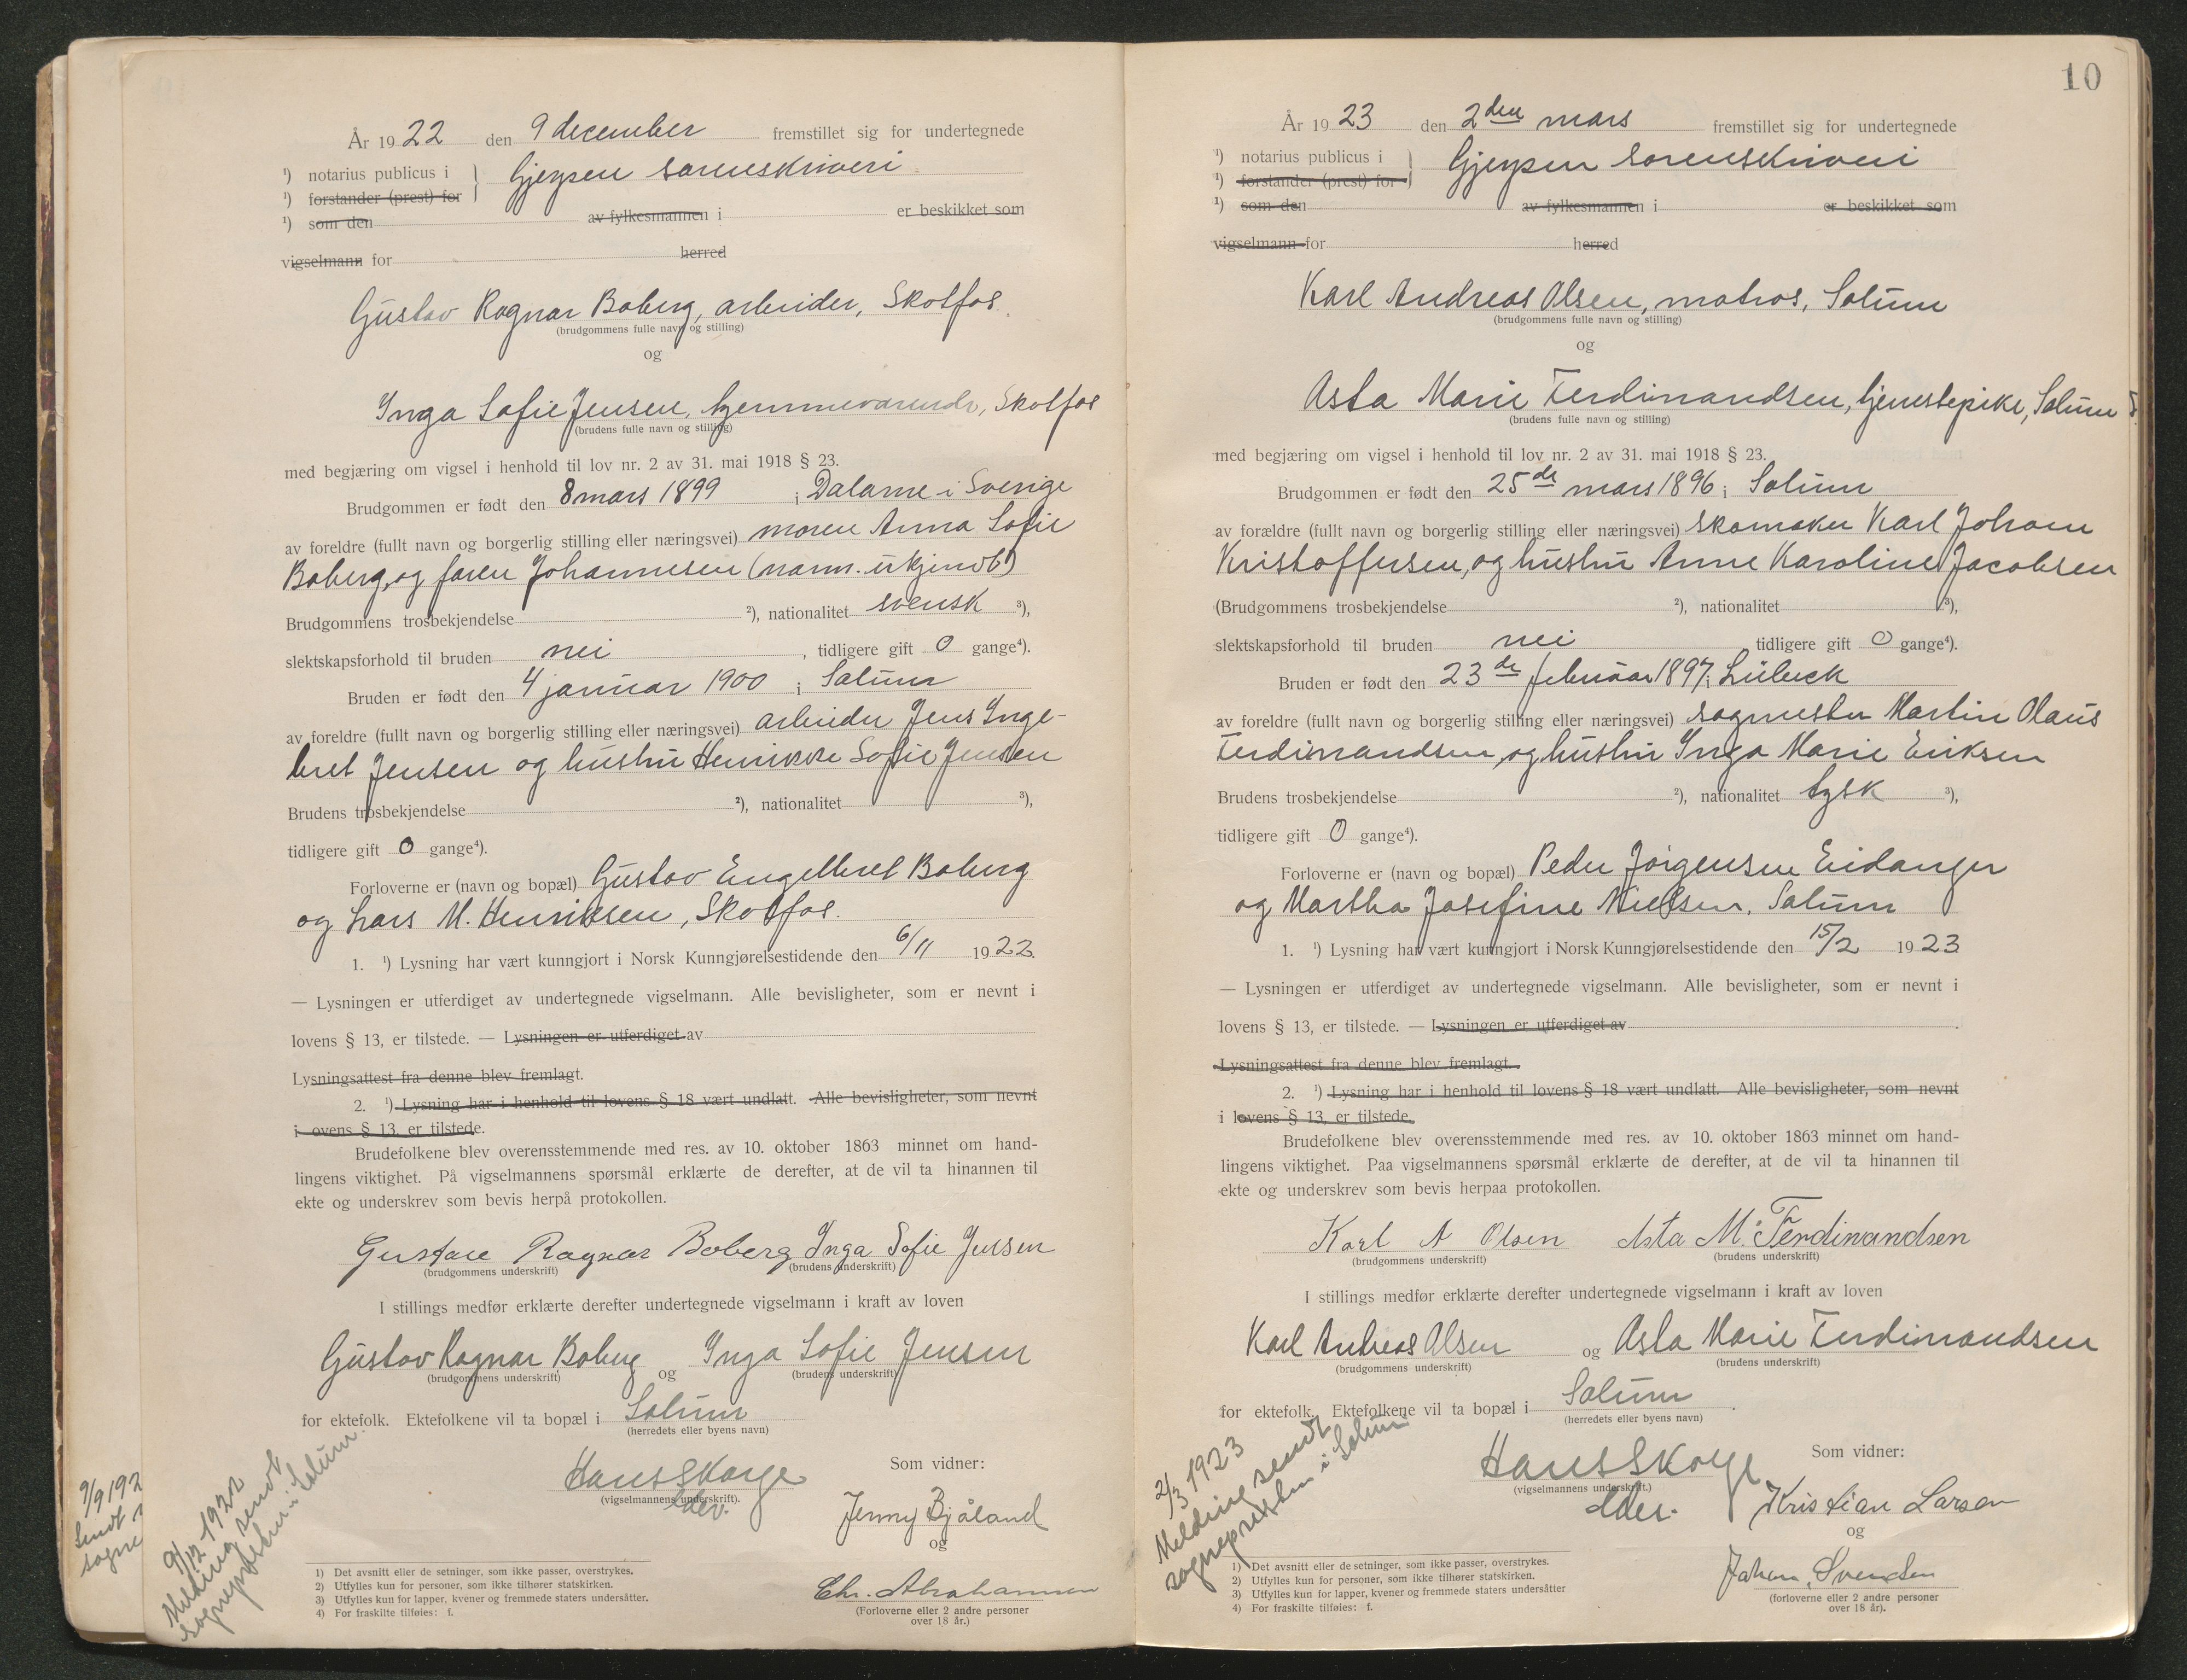 År 1922 den 9 december fremstillet sig for undertegnede
¹) notarius publicus i } Gjerpen sorenskriveri
¹) forstander (prest) for
¹) som den av fylkesmannen i er beskikket som
vigselmann for herred
Gustav Ragnar Boberg, arbeider, Skotfos.
(brudgommens fulle navn og stilling)
og
Inga Sofie Jensen, hjemmeværende, Skotfos
(brudens fulle navn og stilling)
med begjæring om vigsel i henhold til lov nr. 2 av 31. mai 1918 § 23.
Brudgommen er født den 8 mars 1899 i Dalarne i Sverige
av foreldre (fullt navn og borgerlig stilling eller næringsvei) moren Anna Sofie
Boberg, og faren Johannesen (navn ukjendt)
Brudgommens trosbekjendelse ²), nationalitet svensk ³),
slektskapsforhold til bruden nei, tidligere gift 0 gange⁴).
Bruden er født den 4 januar 1900 i Solum
av foreldre (fullt navn og borgerlig stilling eller næringsvei) arbeider Jens Inge-
bret Jensen og hustru Henrikke Sofie Jensen
Brudens trosbekjendelse ²), nationalitet ³),
tidligere gift 0 gange⁴).
Forloverne er (navn og bopæl) Gustav Engelbret Boberg
og Lars M. Henriksen, Skotfos.
1. ¹) Lysning har vært kunngjort i Norsk Kunngjørelsestidende den 6/11 1922.
— Lysningen er utferdiget av undertegnede vigselmann. Alle bevisligheter, som er nevnt i
lovens § 13, er tilstede. — Lysningen er utferdiget av
Lysningsattest fra denne blev fremlagt.
2. ¹) Lysning har i henhold til lovens § 18 vært undlatt. Alle bevisligheter, som nevnt
i ovens § 13, er tilstede.
Brudefolkene blev overensstemmende med res. av 10. oktober 1863 minnet om hand-
lingens viktighet. På vigselmannens spørsmål erklærte de derefter, at de vil ta hinannen til
ekte og underskrev som bevis herpå protokollen.
Gustav Ragnar Boberg Inga Sofie Jensen
(brudgommens underskrift) (brudens underskrift)
I stillings medfør erklærte derefter undertegnede vigselmann i kraft av loven
Gustav Ragnar Boberg og Inga Sofie Jensen
(brudgommens underskrift) (brudens underskrift)
for ektefolk. Ektefolkene vil ta bopæl i Solum
(herredets eller byens navn)
Hans Skorge
(vigselmannens underskrift).
Som vidner:
Jenny Bjåland
og
Chr. Abrahamsen
(Forloverne eller 2 andre personer
over 18 år.)
9/12 1922
Melding sendt
sognepresten i Solum.
9/9 192
Sendt
sogne
1) Det avsnitt eller de setninger, som ikke passer, overstrykes.
2) Utfylles kun for personer, som ikke tilhører statskirken.
3) Utfylles kun for lapper, kvener og fremmede staters undersåtter.
4) For fraskilte tilføies: f.
10
År 1923 den 2den mars fremstillet sig for undertegnede
¹) notarius publicus i } Gjerpen sorenskriveri
¹) forstander (prest) for
¹) som den av fylkesmannen i er beskikket som
vigselmann for herred
Karl Andreas Olsen, matros, Solum
(brudgommens fulle navn og stilling)
og
Asta Marie Ferdinandsen, tjenestepike, Solum
(brudens fulle navn og stilling)
med begjæring om vigsel i henhold til lov nr. 2 av 31. mai 1918 § 23.
Brudgommen er født den 25de mars 1896 i Solum
av forældre (fullt navn og borgerlig stilling eller næringsvei) skomaker Karl Johan
Kristoffersen, og hustru Anne Karoline Jacobsen
(Brudgommens trosbekjendelse ²), nationalitet ³),
slektskapsforhold til bruden nei tidligere gift 0 gange⁴).
Bruden er født den 23de februar 1897 i Lübeck
av foreldre (fullt navn og borgerlig stilling eller næringsvei) sagmester Martin Olaus
Ferdinandsen, og hustru Inga Marie Eriksen
Brudens trosbekjendelse ²), nationalitet tysk ³),
tidligere gift 0 gange⁴).
Forloverne er (navn og bopæl) Peder Jørgensen Eidanger
og Martha Josefine Nielsen, Solum
1. ¹) Lysning har vært kunngjort i Norsk Kunngjørelsestidende den 15/2 1923
— Lysningen er utferdiget av undertegnede vigselmann. Alle bevisligheter, som er nevnt i
lovens § 13, er tilstede. — Lysningen er utferdiget av
Lysningsattest fra denne blev fremlagt.
2. ¹) Lysning har i henhold til lovens § 18 vært undlatt. Alle bevisligheter, som nevnt
i lovens § 13, er tilstede.
Brudefolkene blev overensstemmende med res. av 10. oktober 1863 minnet om hand-
lingens viktighet. Paa vigselmannens spørsmål erklærte de derefter, at de vil ta hinannen til
ekte og underskrev som bevis herpaa protokollen.
Karl A Olsen Asta M. Ferdinandsen
(brudgommens underskrift) (brudens underskrift)
I stillings medfør erklærte derefter undertegnede vigselmann i kraft av loven
Karl Andreas Olsen og Asta Marie Ferdinandsen
(brudgommens underskrift) (brudens underskrift)
for ektefolk. Ektefolkene vil ta bopæl i Solum.
(herredets eller byens navn)
Hans Skorge
(vigselmannens underskrift.)
Som vidner:
Kristian Larsen
og
Johan Svendsen
(forloverne eller 2 andre personer
over 18 år).
2/3 1923
Melding sendt
sognepresten i Solum.
1) Det avsnitt eller de setninger, som ikke passer, overstrykes.
2) Utfylles kun for personer, som ikke tilhører statskirken.
3) Utfylles kun for lapper, kvener og fremmede staters undersåtter
4) For fraskilte tilføies: f.